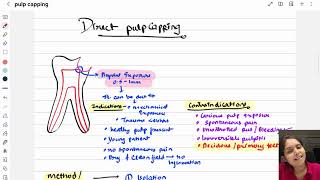 pulp capping
Direct pulp capping
Pinpoint Exposure
0.5-1mm
It can be due to
Indications
→ Mechanical Exposure
• Trauma causes
• Healthy pulp present
• Young patient
• No spontaneous pain
• Dry & clean field → no
Contraindications
• Carious pulp exposure
• Spontaneous pain
• Irreversible pulpitis
• Decidous / primary teeth
method/
① Isolation